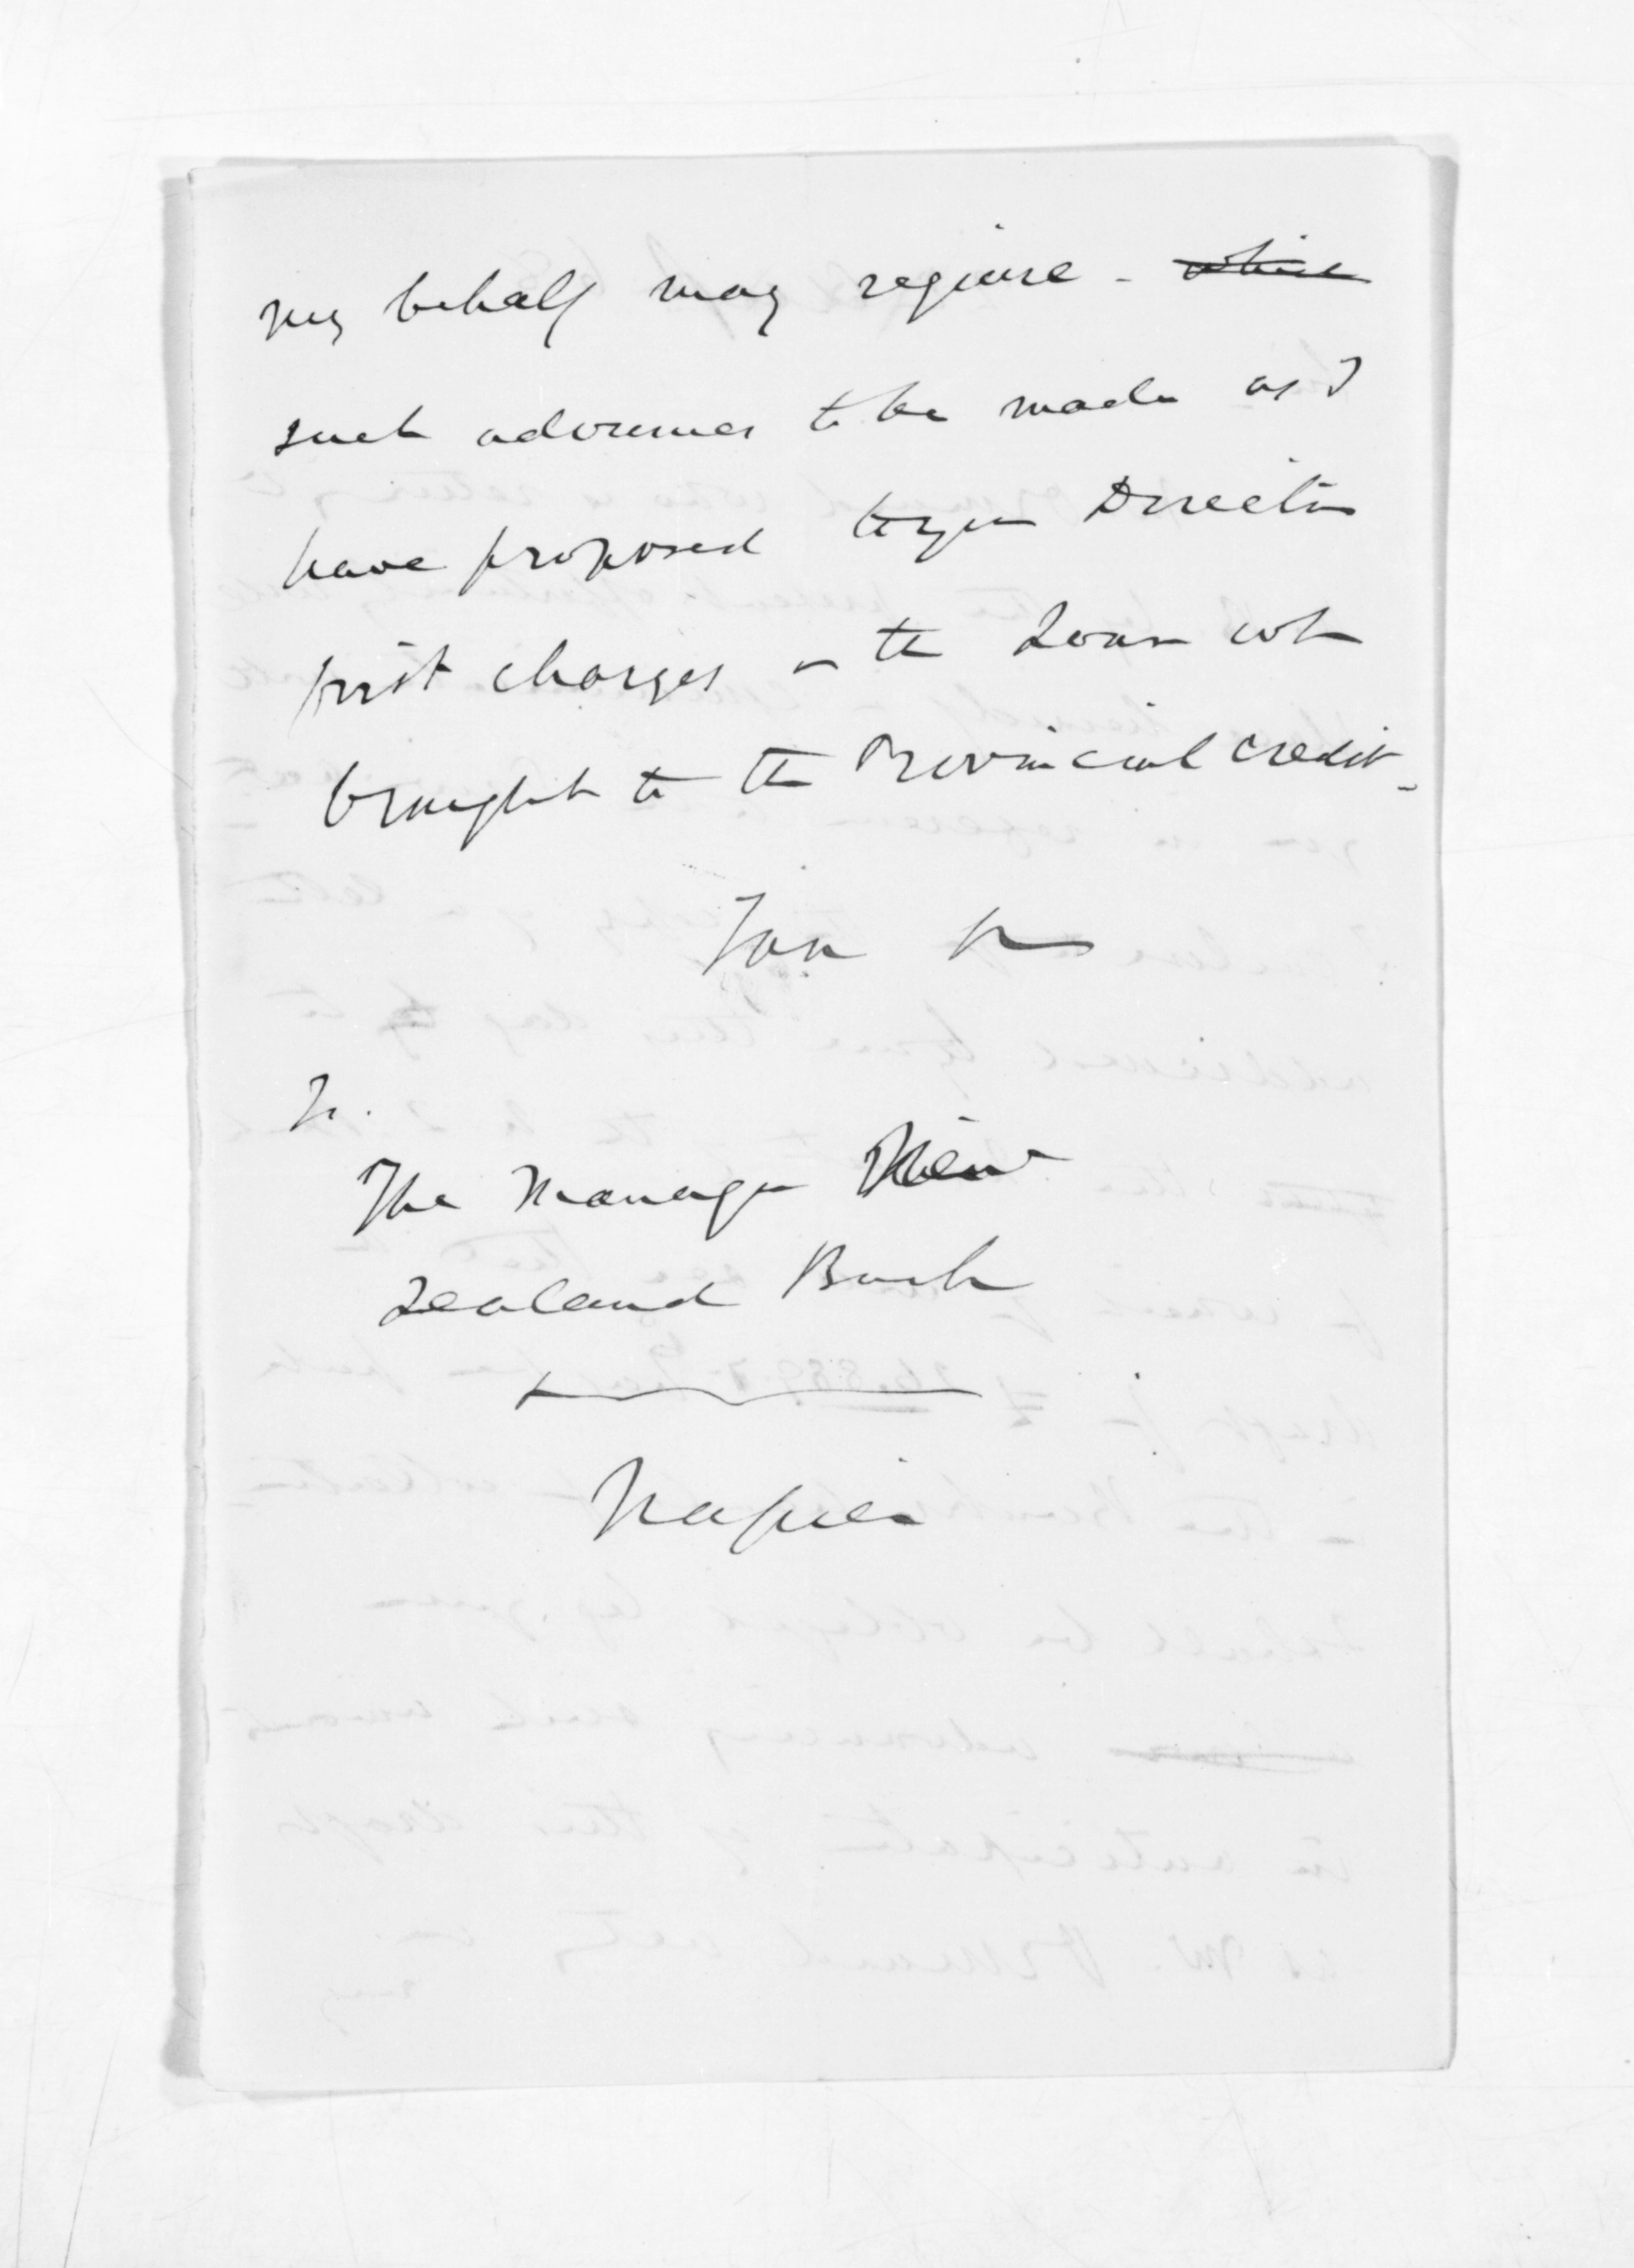 my behalf may require - which
such advances to be made as I
have proposed to your Directors
first charges on the Loan when
brought to the Provincial credit.
I am
To.
The Manager New
Zealand Bank
Napier